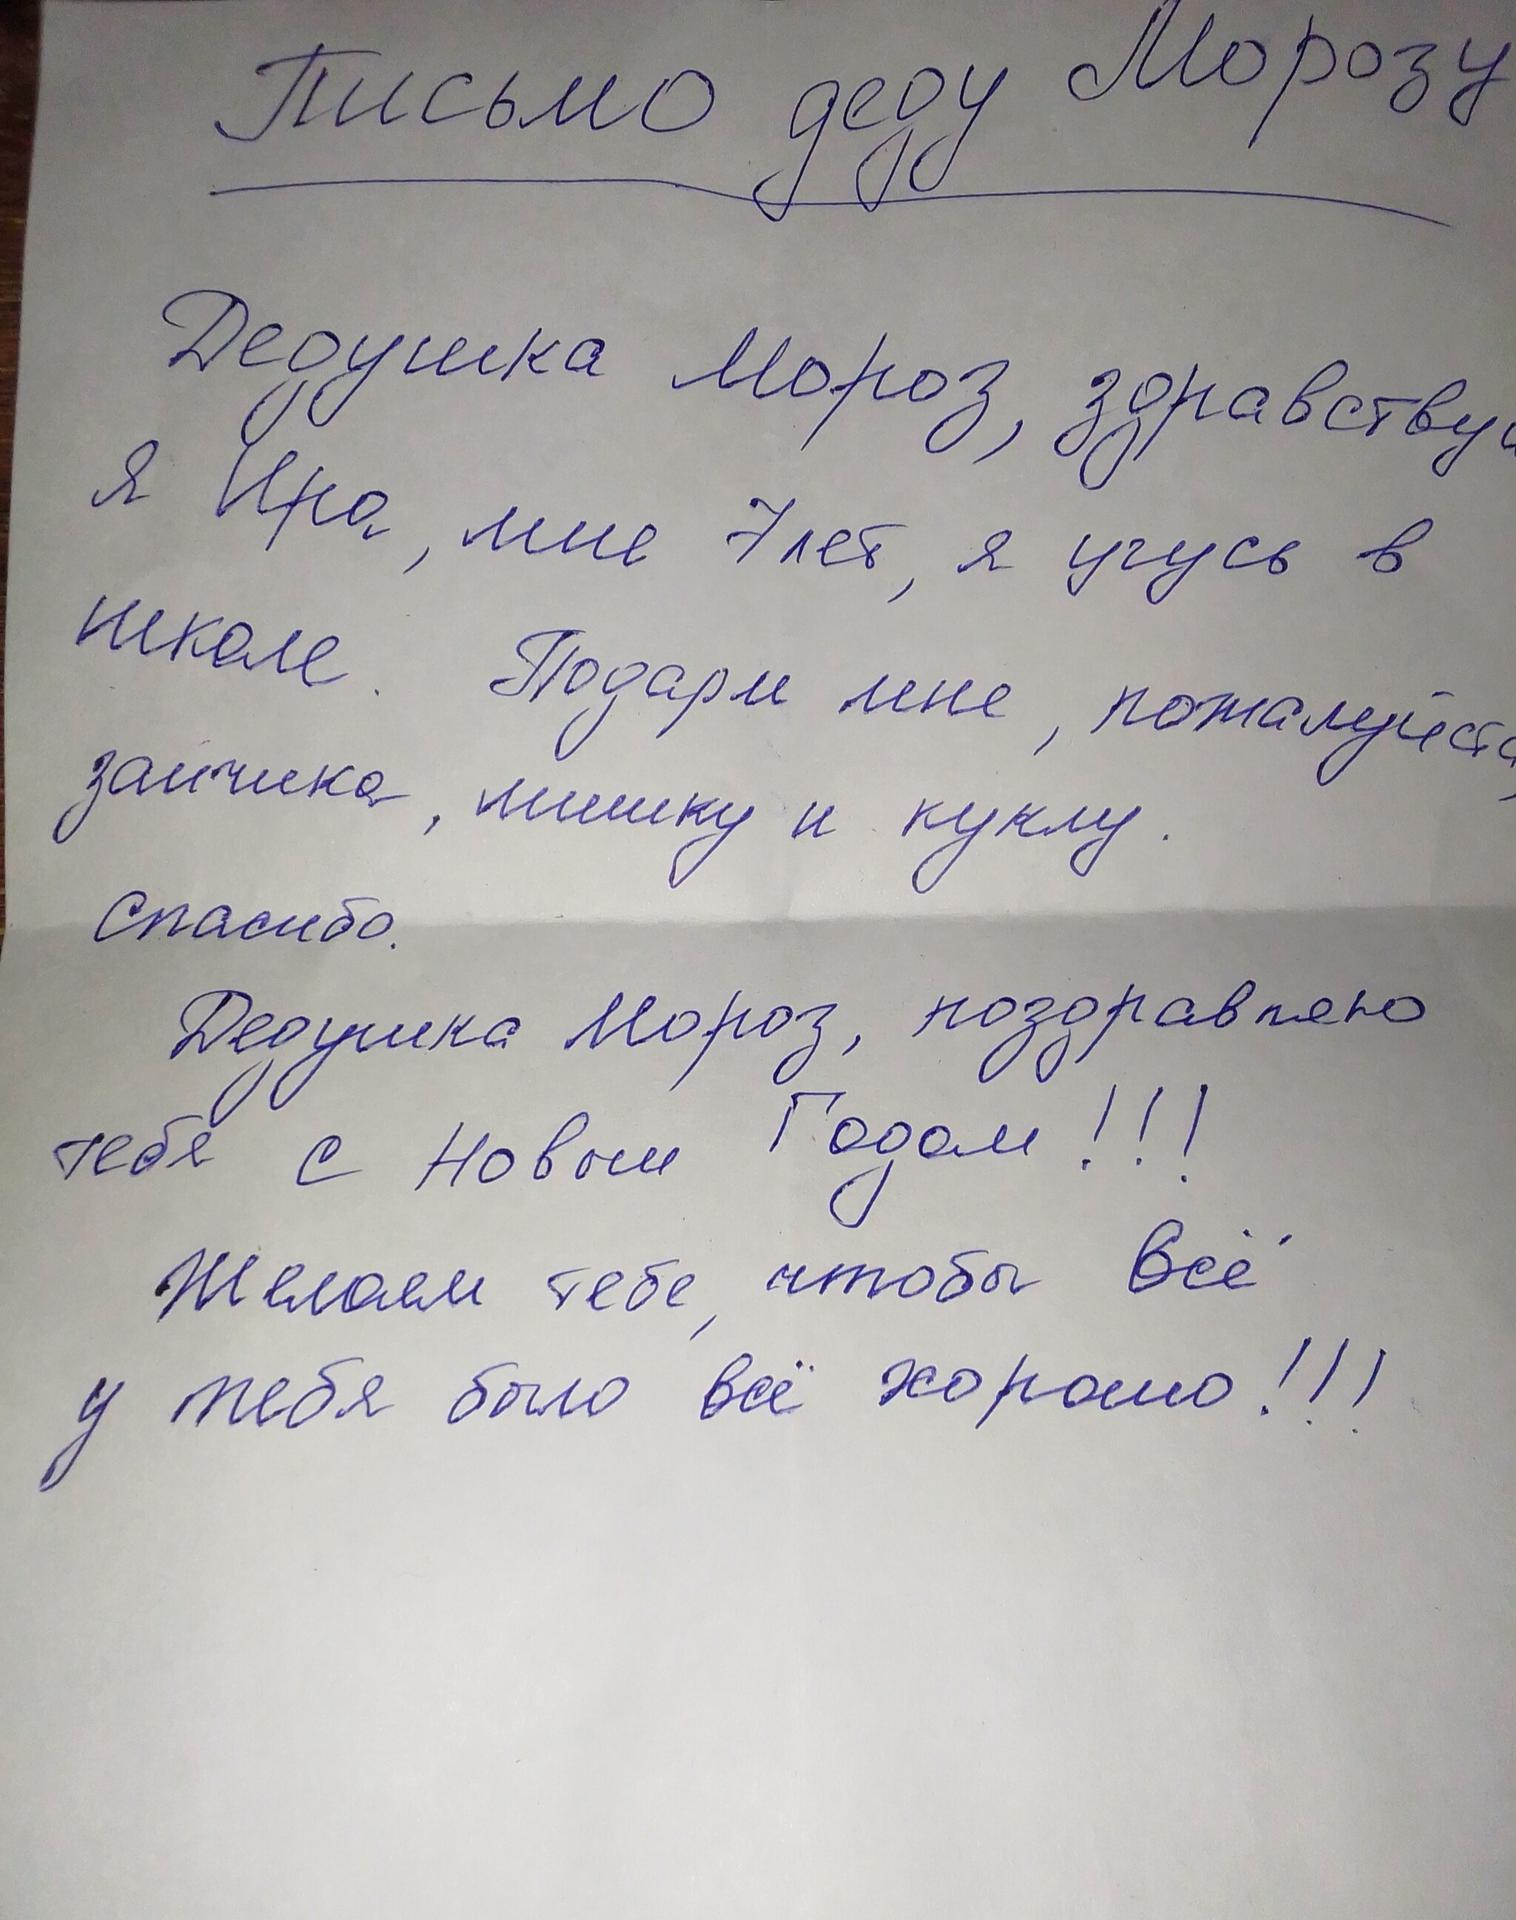 Письмо деду Морозу
Дедушка Мороз, здравствуй
я Ира, мне 7 лет, я учусь в
школе. Подари мне, пожалуйста,
зайчика, мишку и куклу.
Спасибо.
Дедушка Мороз, поздравляю
тебя с Новым Годом!!!
Желаем тебе, чтобы всё
у тебя было всё хорошо!!!